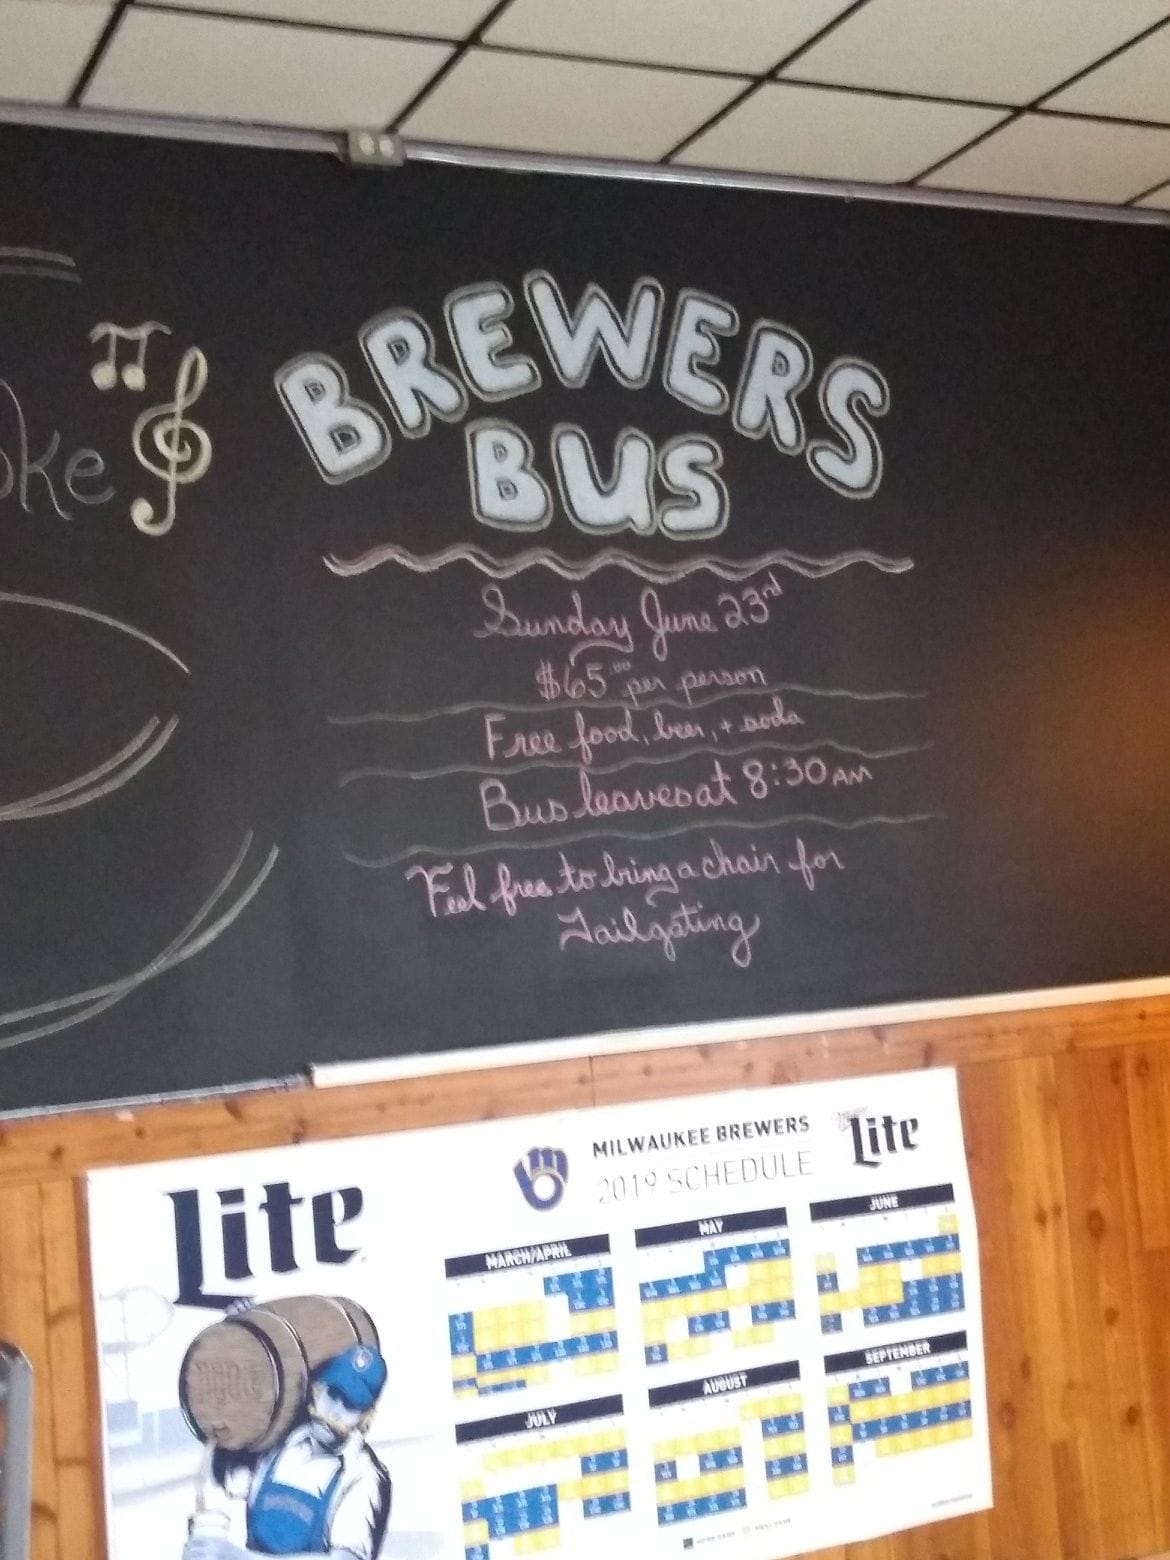 oke
BREWERS
BUS
Sunday June 23rd
$65.00 per person
Free food, beer, + soda
Bus leaves at 8:30 AM
Feel free to bring a chair for
Tailgating
Lite
MILWAUKEE BREWERS
2019 SCHEDULE
Lite
MARCH/APRIL
MAY
JUNE
JULY
AUGUST
SEPTEMBER